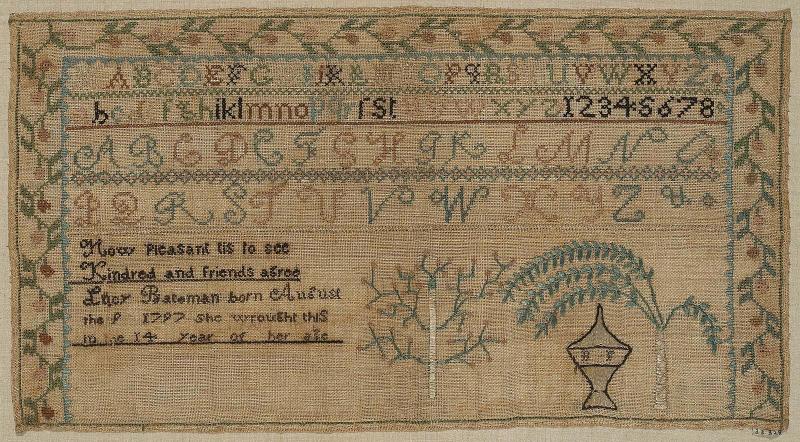 A B C D E F G H I K L M O P Q R S U V W X Y Z
b c d f g h i k l m n o p q r ſ S t v w x y z 1 2 3 4 5 6 7 8
A B C D E F G H I K L M N O
P Q R S T U V W X Y Z &
How Pleasant tis to see
Kindred and friends agree
Lucy Bateman born August
the 1797 She wrought thiS
in he 14 year of her age
P F